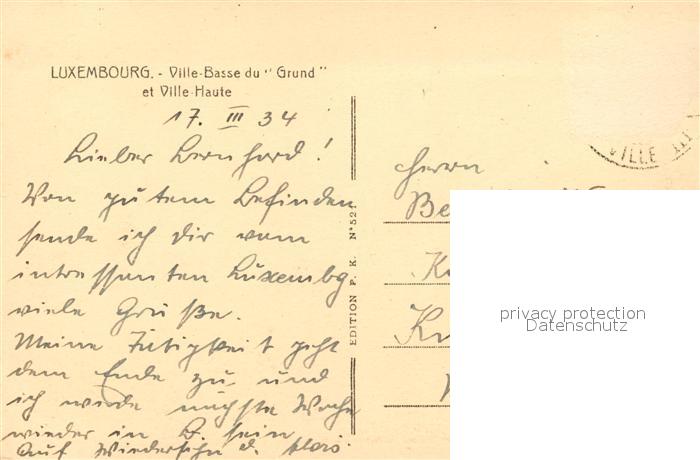 LUXEMBOURG. - Ville-Basse du "Grund"
et Ville-Haute
17. III 34
Lieber Bernhard!
Von gutem Befinden
sende ich Dir vom
intressanten Luxembg
viele Grüße.
Meine Tätigkeit geht
dem Ende zu und
ich werde nächste Woche
wieder in B. sein
Auf Wiedersehn d.
EDITION P. K. N° 521
VILLE
Herrn
Be
privacy protection
Datenschutz